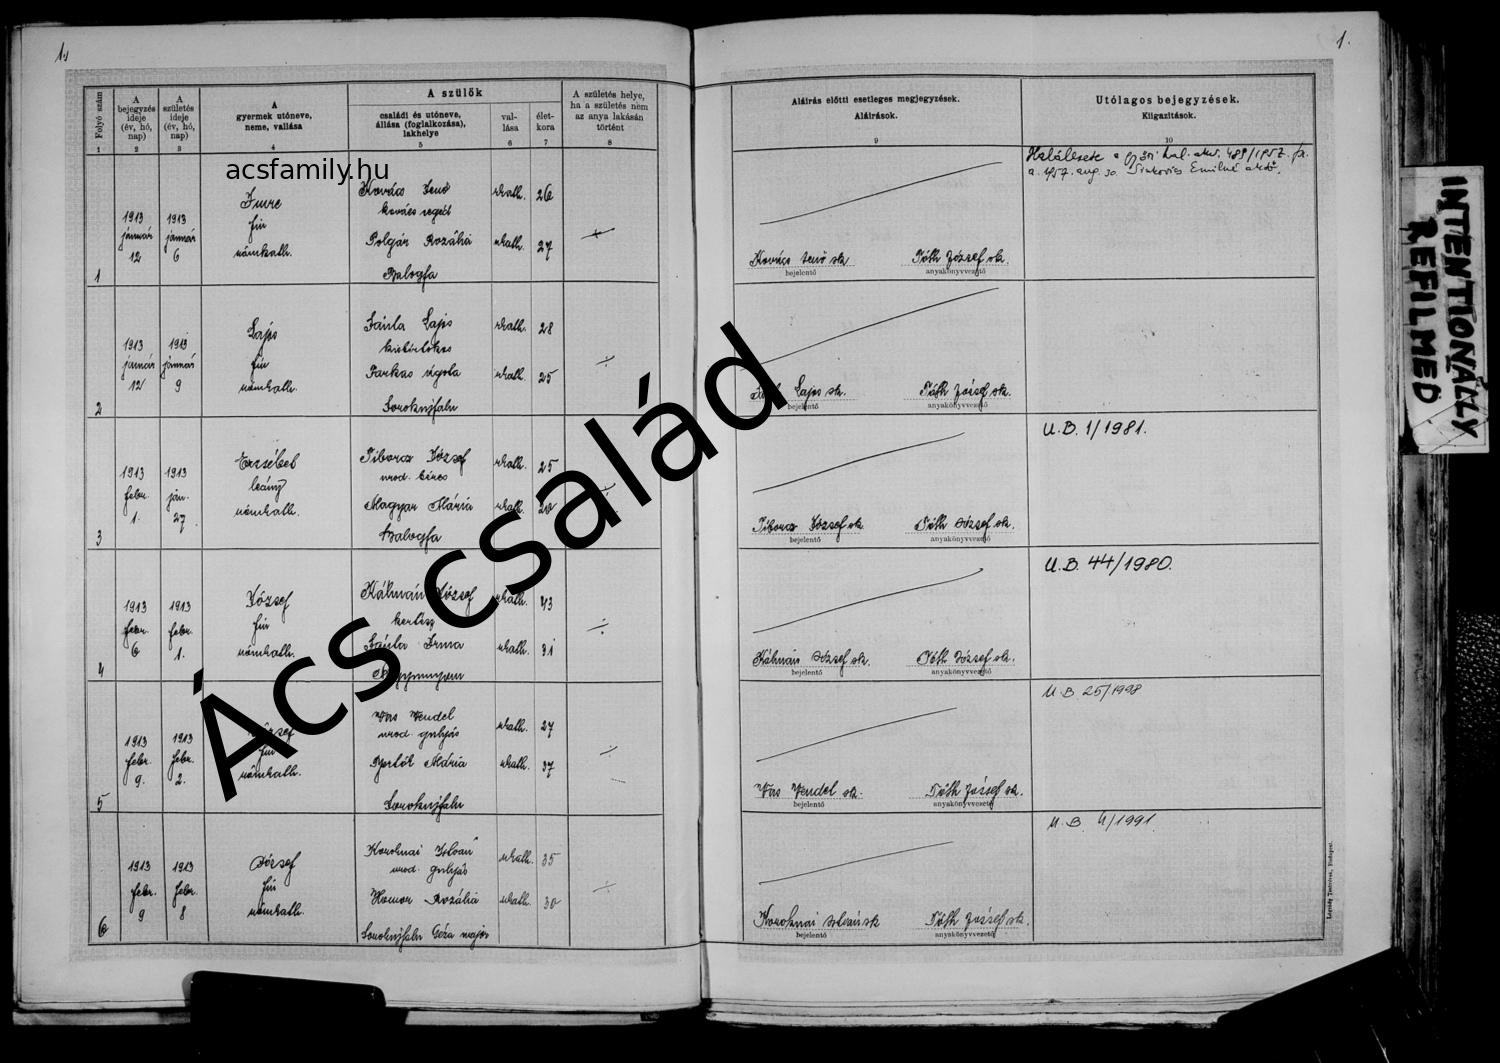 1.
1.
Folyó szám
A bejegyzés ideje (év, hó, nap)
A születés ideje (év, hó, nap)
A gyermek utóneve, neme, vallása
A szülők
családi és utóneve, állása (foglalkozása), lakhelye
vallása
életkora
A születés helye, ha a születés nem az anya lakásán történt
Aláírás előtti esetleges megjegyzések.
Aláírások.
Utólagos bejegyzések.
Kiigazítások.
1 2 3 4 5 6 7 8 9 10
acsfamily.hu
Ács család
1
1913 január 12
1913 január 6
Imre
fiú
rómkath.
Kovács Jenő
kovács segéd
rkath. 26
Polgár Rozália
rkath. 27
Balogfa
Kovács Jenő sk.
bejelentő
Tóth József sk.
anyakönyvvezető
Halálesete a győri hal. akv. 489/1957.
a. 1957. aug. 30.
2
1913 január 12
1913 január 9
Lajos
fiú
rómkath.
Lajos
kisbirtokos
rkath. 28
Farkas Ágota
rkath. 25
Sorokujfalu
Lajos sk.
bejelentő
Tóth József sk.
anyakönyvvezető
3
1913 febr. 1.
1913 jan. 27.
Erzsébet
leány
rómkath.
Tiborcz József
urod. béres
rkath. 25
Magyar Mária
rkath. 20
Balogfa
Tiborcz József sk.
bejelentő
Tóth József sk.
anyakönyvvezető
U.B. 1/1981.
4
1913 febr. 6
1913 febr. 1.
József
fiú
rómkath.
Kálmán József
kertész
rkath. 43
Irma
rkath. 31
Kálmán József sk.
bejelentő
Tóth József sk.
anyakönyvvezető
U.B. 44/1980.
5
1913 febr. 9.
1913 febr. 2.
József
fiú
rómkath.
Vas Vendel
urod. gulyás
rkath. 27
Mária
rkath. 37
Sorokujfalu
Vas Vendel sk.
bejelentő
Tóth József sk.
anyakönyvvezető
U.B 25/1998
6
1913 febr. 9
1913 febr. 8
József
fiú
rómkath.
Koroknai István
urod. gulyás
rkath. 35
Homor Rozália
rkath. 30
Sorokujfalu Géza major
Koroknai István sk
bejelentő
Tóth József sk.
anyakönyvvezető
U.B. 4/1991.
Légrády Testvérek, Budapest.
INTENTIONALLY
REFILMED